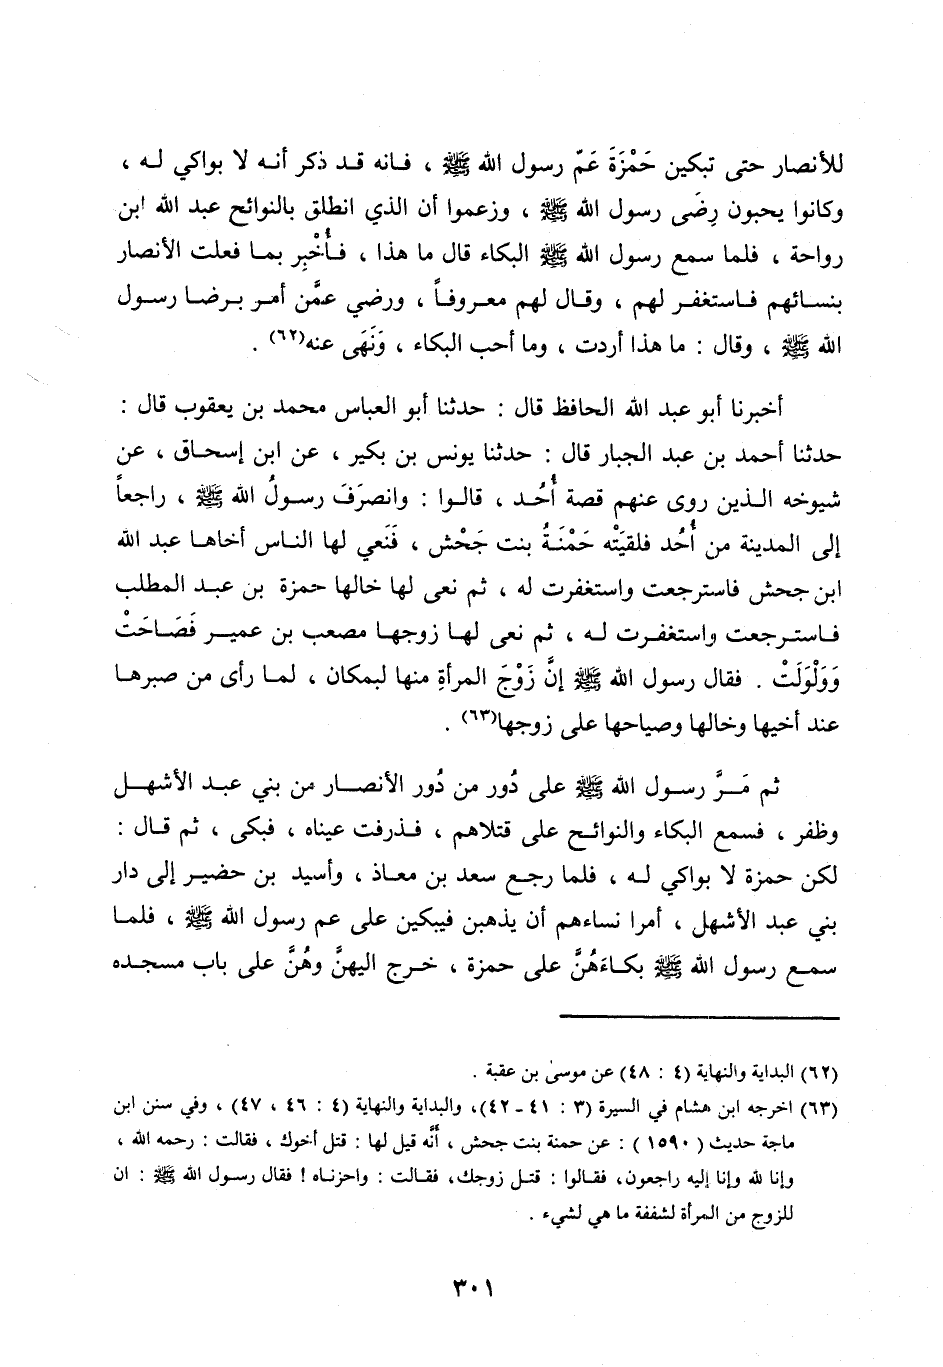 للأنصار حتى تبكين حَمْزَةَ عَمّ رسول الله ﷺ ، فانه قد ذكر أنه لا بواكي له ،
وكانوا يحبون رِضَى رسول الله ﷺ ، وزعموا أن الذي انطلق بالنوائح عبد الله ابن
رواحة ، فلما سمع رسول الله ﷺ البكاء قال ما هذا ، فأُخْبِر بما فعلت الأنصار
بنسائهم فاستغفر لهم ، وقال لهم معروفاً ، ورضي عمَّن أمر برضا رسول
الله ﷺ ، وقال : ما هذا أردت ، وما أحب البكاء ، وَنَهَى عنه(٦٢) .
أخبرنا أبو عبد الله الحافظ قال : حدثنا أبو العباس محمد بن يعقوب قال :
حدثنا أحمد بن عبد الجبار قال : حدثنا يونس بن بكير ، عن ابن إسحاق ، عن
شيوخه الذين روى عنهم قصة أُحُد ، قالوا : وانصرَفَ رسولُ الله ﷺ ، راجعاً
إلى المدينة من أُحُد فلقيَتْه حَمْنَةُ بنت جَحْش ، فَنَعي لها الناس أخاها عبد الله
ابن جحش فاسترجعت واستغفرت له ، ثم نعى لها خالها حمزة بن عبد المطلب
فاسترجعت واستغفرت له ، ثم نعى لها زوجها مصعب بن عمير فَصَاحَتْ
وَوَلْوَلَتْ . فقال رسول الله ﷺ إنَّ زَوْجَ المرأةِ منها لبمكان ، لما رأى من صبرها
عند أخيها وخالها وصياحها على زوجها(٦٣) .
ثم مَرَّ رسول الله ﷺ على دُور من دُور الأنصار من بني عبد الأشهل
وظفر ، فسمع البكاء والنوائح على قتلاهم ، فذرفت عيناه ، فبكى ، ثم قال :
لكن حمزة لا بواكي له ، فلما رجع سعد بن معاذ ، وأسيد بن حضير إلى دار
بني عبد الأشهل ، أمرا نساءهم أن يذهبن فيبكين على عم رسول الله ﷺ ، فلما
سمع رسول الله ﷺ بكاءَهُنَّ على حمزة ، خرج اليهنَّ وهُنَّ على باب مسجده
(٦٢) البداية والنهاية (٤ : ٤٨) عن موسىٰ بن عقبة .
(٦٣) اخرجه ابن هشام في السيرة (٣ : ٤١ - ٤٢)، والبداية والنهاية (٤ : ٤٦ ، ٤٧) ، وفي سنن ابن
ماجة حديث ( ١٥٩٠ ) : عن حمنة بنت جحش ، أنَّه قيل لها : قتل أخوك ، فقالت : رحمه الله ،
وإنا لله وإنا إليه راجعون، فقالوا : قتل زوجك، فقالت : واحزناه ! فقال رسول الله ﷺ : ان
للزوج من المرأة لشفقة ما هي لشيء .
٣٠١